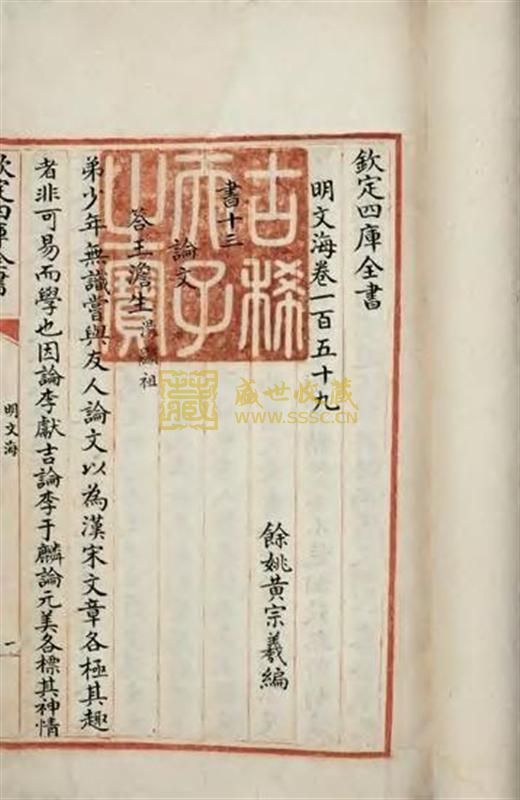 欽定四庫全書
明文海卷一百五十九
餘姚黃宗羲編
書十三
論文
答王澹生 湯顯祖
弟少年無識嘗與友人論文以為漢宋文章各極其趣
者非可易而學也因論李獻吉論李于麟論元美各標其神情
欽定四庫全書
明文海
一
古稀天子之寶
盛世收藏
www.sssc.cn
藏